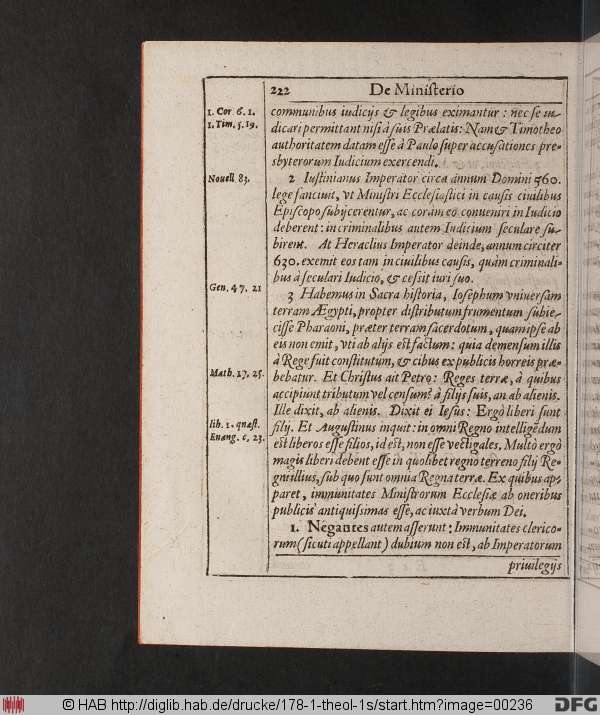 222 De Miniſterio
1. Cor. 6. 1.
1. Tim. 5. 19.
communibus iudicijs & legibus eximantur: nec ſe iu-
dicari permittant niſi à ſuis Prælatis: Nam & Timotheo
authoritatem datam eſſe à Paulo ſuper accuſationes pres-
byterorum Iudicium exercendi.
Nouell. 83.
2 Iuſtinianus Imperator circa annum Domini 560.
lege ſanciuit, vt Miniſtri Eccleſiaſtici in cauſis ciuilibus
Epiſcopo ſubijcerentur, ac coram eo conueniri in Iudicio
deberent: in criminalibus autem Iudicium ſeculare ſu-
birent. At Heraclius Imperator deinde, annum circiter
630. exemit eos tam in ciuilibus cauſis, quàm criminali-
bus à ſeculari Iudicio, & ceßit iuri ſuo.
Gen. 47. 21
3 Habemus in Sacra hiſtoria, Ioſephum vniuerſam
terram Ægypti, propter diſtributum frumentum ſubie-
ciſſe Pharaoni, præter terram ſacerdotum, quam ipſe ab
eis non emit, vti ab alijs eſt factum: quia demenſum illis
à Rege fuit conſtitutum, & cibus ex publicis horreis præ-
Math. 17. 25.
bebatur. Et Chriſtus ait Petro: Reges terræ, à quibus
accipiunt tributum vel cenſum? à filijs ſuis, an ab alienis.
Ille dixit, ab alienis. Dixit ei Ieſus: Ergò liberi ſunt
lib. 1. quæſt.
Euang. c. 23.
filij. Et Auguſtinus inquit: in omni Regno intelligēdum
eſt liberos eſſe filios, id eſt, non eſſe vectigales. Multò ergò
magis liberi debent eſſe in quolibet regno terreno filij Re-
gni illius, ſub quo ſunt omnia Regna terræ. Ex quibus ap-
paret, immunitates Miniſtrorum Eccleſiæ ab oneribus
publicis antiquißimas eſſe, ac iuxtà verbum Dei.
1. Negantes autem aſſerunt: Immunitates clerico-
rum (ſicuti appellant) dubium non eſt, ab Imperatorum
priuilegijs
© HAB http://diglib.hab.de/drucke/178-1-theol-1s/start.htm?image=00236
DFG